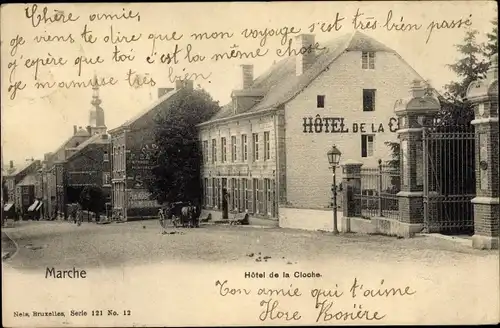 Chère amie,
je viens te dire que mon voyage s'est très bien passé
j'espère que toi c'est la même chose
je m'amuse très bien
HÔTEL DE LA C
Marche
Hôtel de la Cloche.
Ton amie qui t'aime
Flore Rosière
Nels, Bruxelles, Serie 121 No. 12